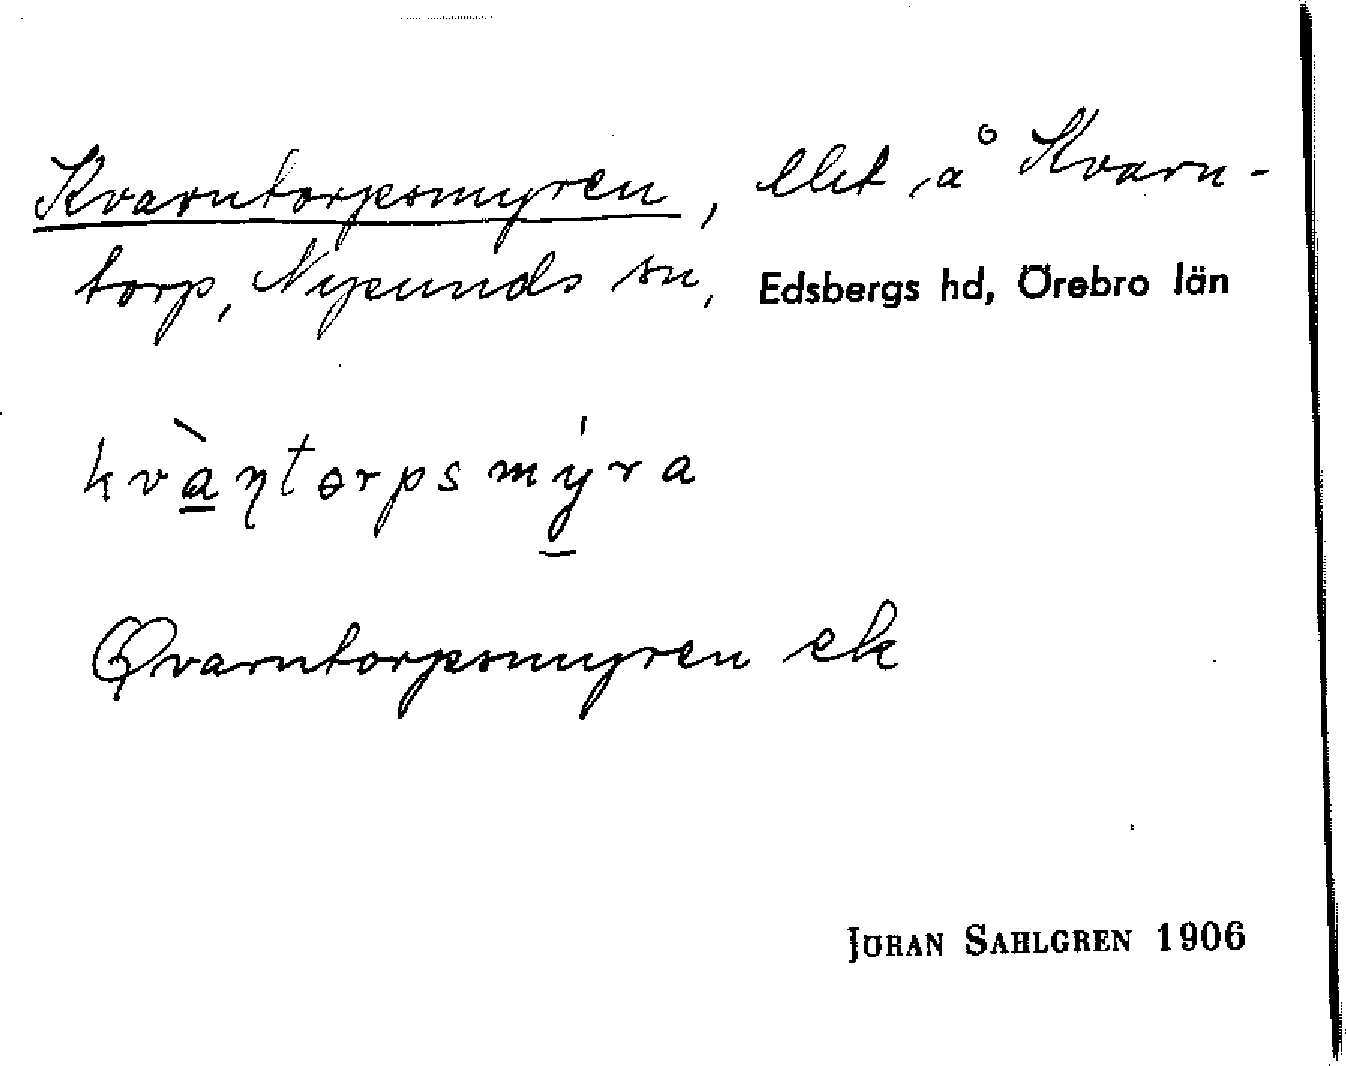 Kvarntorpsmyren, llet å Kvarn-
torp, Nysunds sn, Edsbergs hd, Örebro län
kvàn̩torpsmýra
Qvarntorpsmyren ek
JÖRAN SAHLGREN 1906